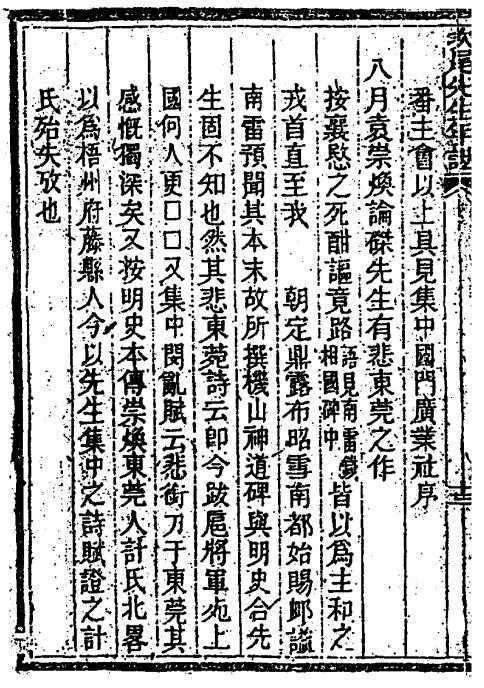 次尾先生年譜
番主會以上具見集中國門廣業社序
八月袁崇煥論磔先生有悲東莞之作
按襄愍之死酣謳竟路語見南雷相國碑中皆以為主和之
戎首直至我　朝定鼎露布昭雪南都始賜卹諡
南雷預聞其本末故所撰機山神道碑與明史合先
生固不知也然其悲東莞詩云即今跋扈將軍死上
國何人更口口又集中閔亂賦云悲銜刀于東莞其
感慨獨深矣又按明史本傳崇煥東莞人計氏北畧
以為梧州府藤縣人今以先生集中之詩賦證之計
氏殆失攷也